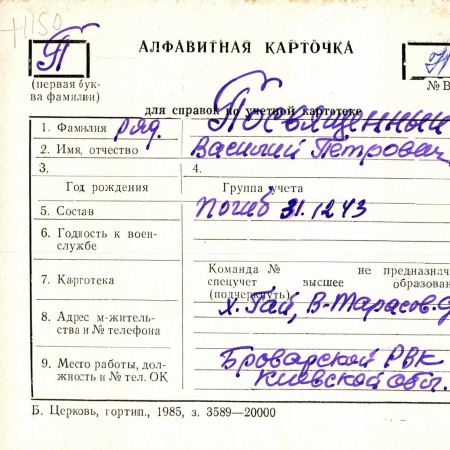 +1150
П
АЛФАВИТНАЯ КАРТОЧКА
(первая бук-
ва фамилии)
№ В
для справок по учетной картотеке
1. Фамилия ряд. Посвященный
2. Имя, отчество Василий Петрович
3.
4.
Год рождения
Группа учета
5. Состав Погиб 31.12.43
6. Годность к воен-
службе
7. Картотека
Команда № не предназнач
спецучет высшее образован
(подчеркнуть)
8. Адрес м-житель-
ства и № телефона
х. Гай, В-Тарасов.
9. Место работы, дол-
жность и № тел. ОК
Броварской РВК
Киевской обл.
Б. Церковь, гортип., 1985, з. 3589—20000